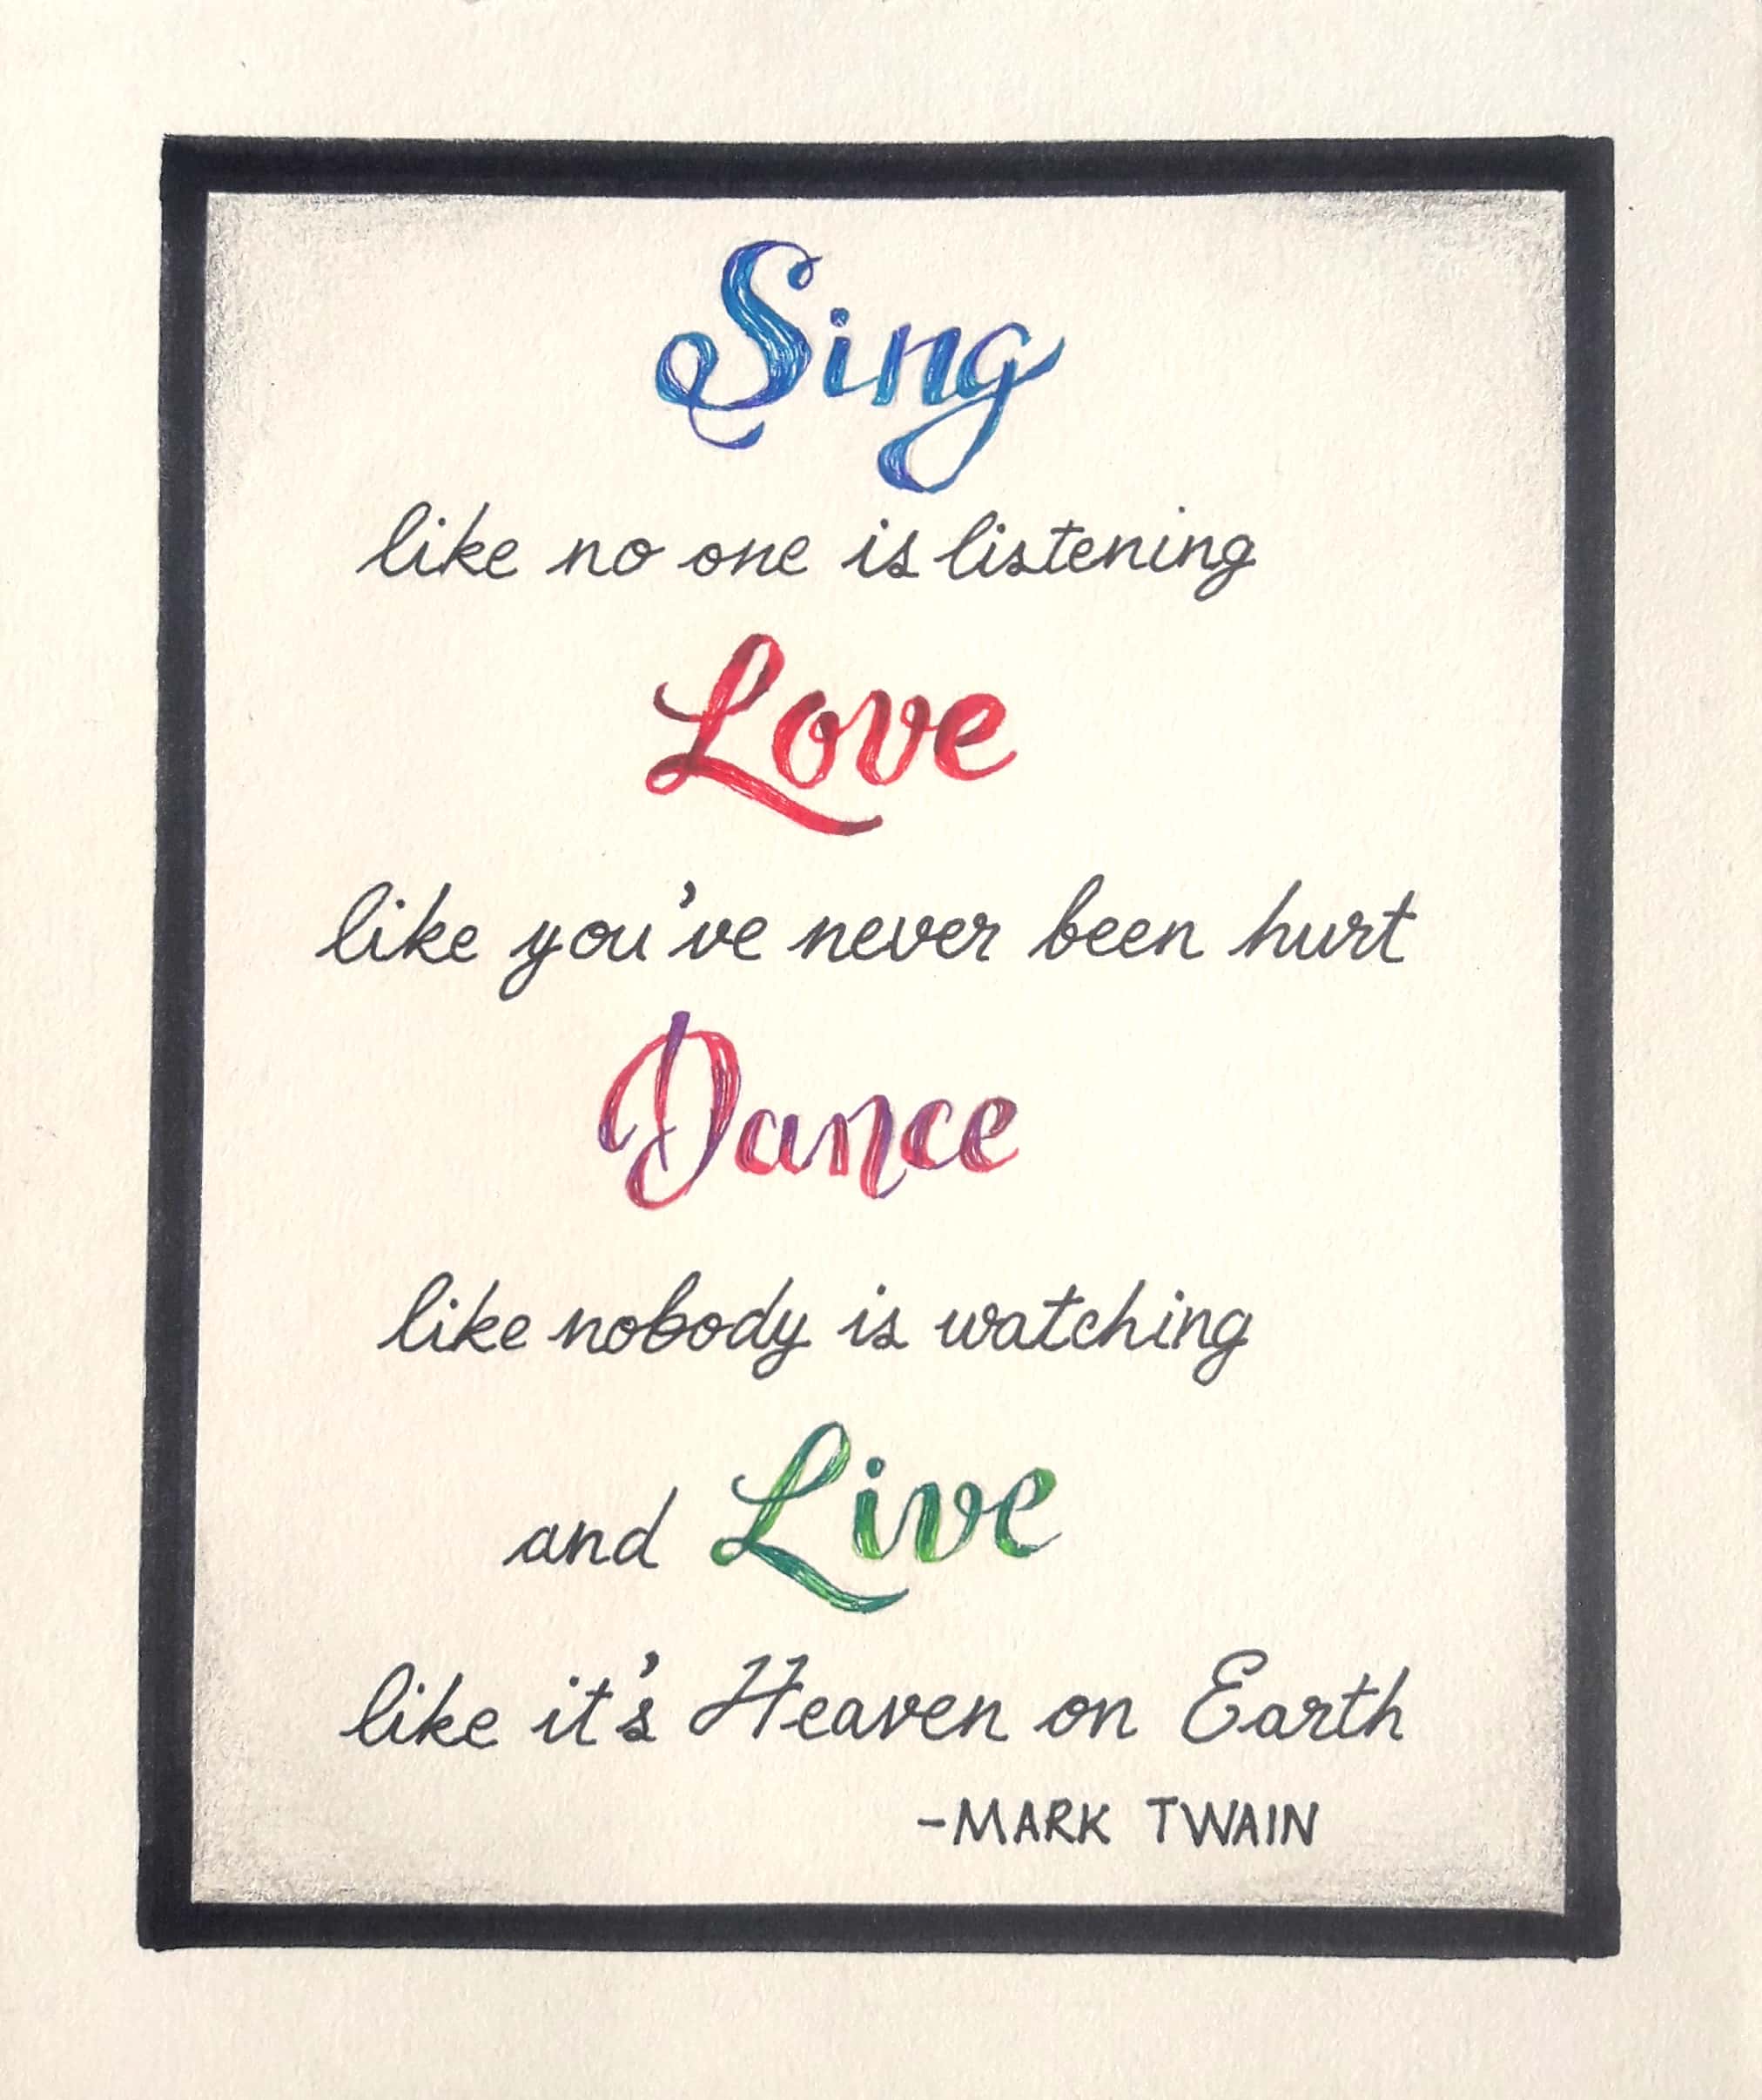 Sing
like no one is listening
Love
like you've never been hurt
Dance
like nobody is watching
and Live
like it's Heaven on Earth
-MARK TWAIN